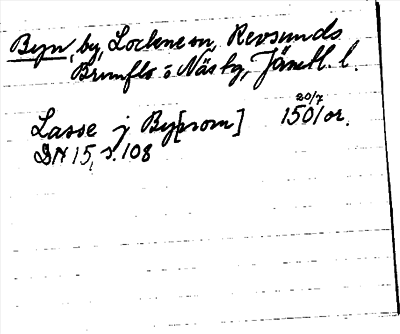 Byn, by, Lockne sn, Revsunds
Brunflo o Näs tg, Jämtl. l.
20/7
Lasse j By[nom] 1501 or.
DN 15, s. 108